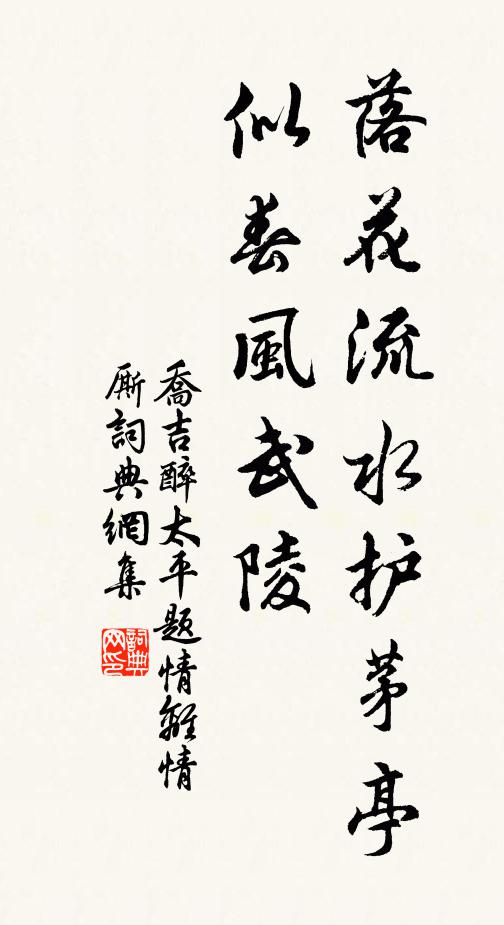 落花流水护茅亭
似春風武陵
喬吉醉太平题情離情
厮詞典網集
詞典网印